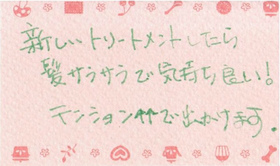 新しいトリートメントしたら
髪サラサラで気持ち良い!
テンション↑↑で出かけます.